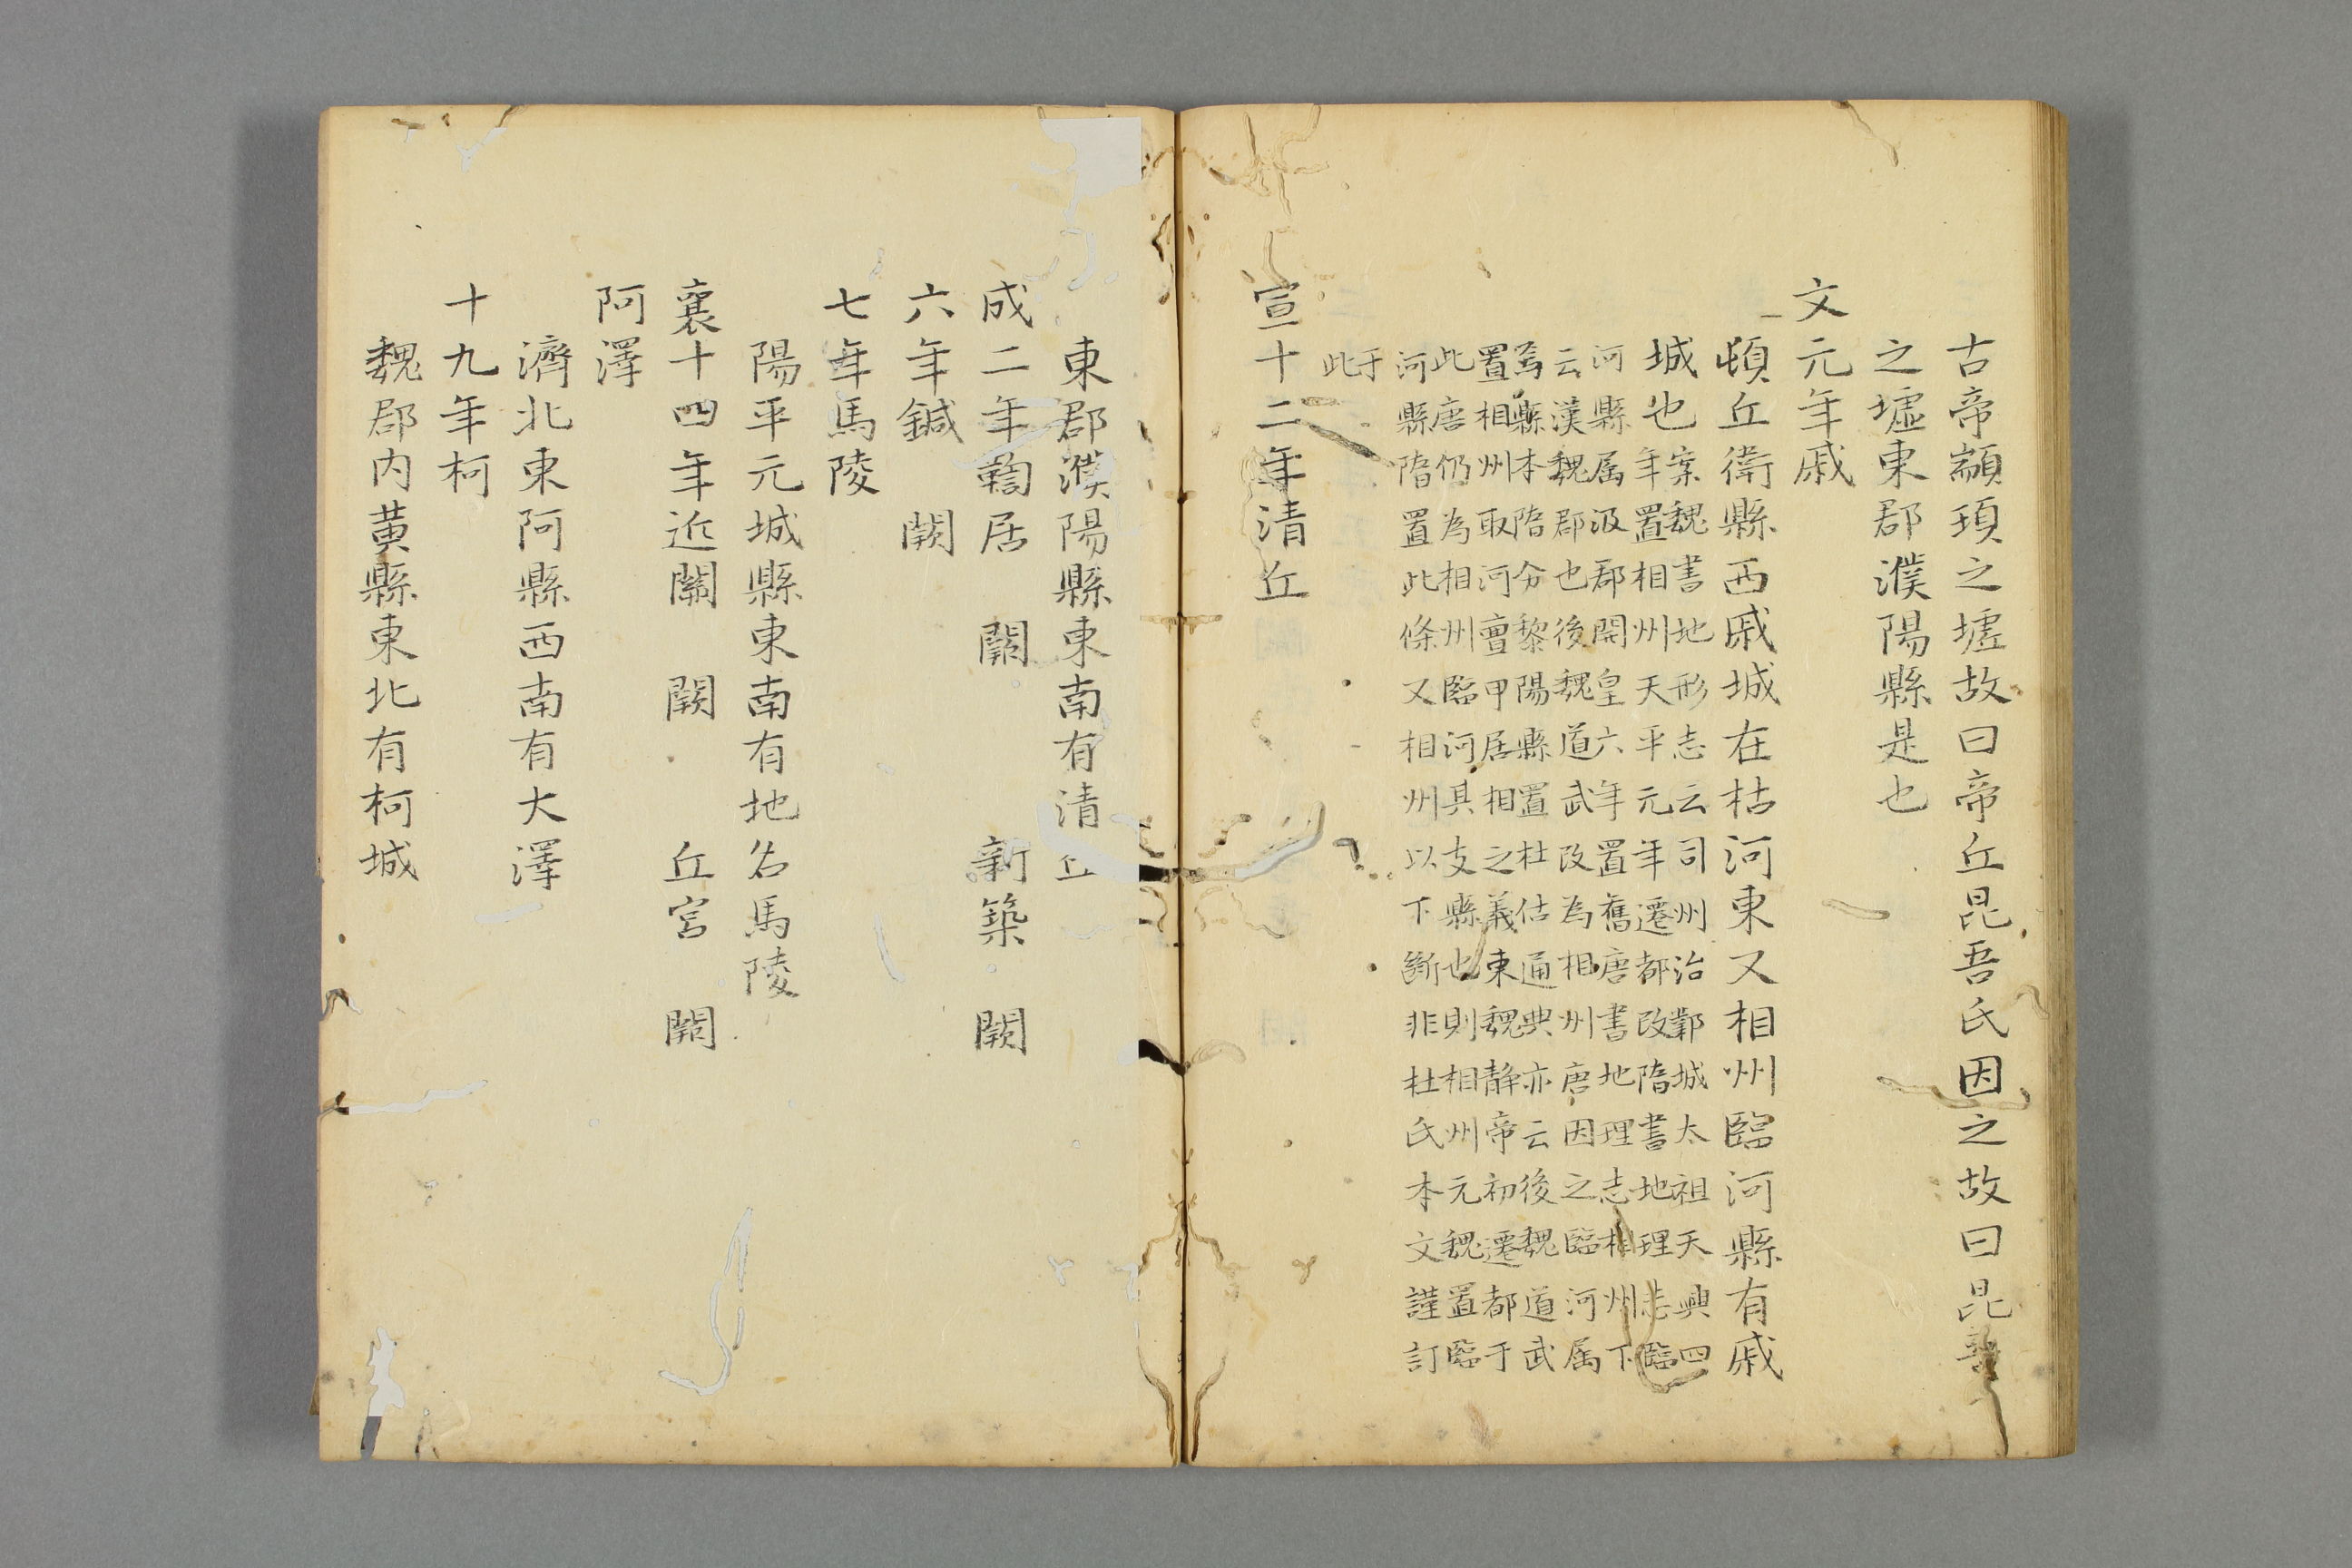 古帝顓頊之墟故曰帝丘昆吾氏因之故曰昆吾
之墟東郡濮陽縣是也
文元年戚
頓丘衛縣西戚城在枯河東又相州臨河縣有戚
城也
案魏書地形志云司州治鄴城太祖天興四
年置相州天平元年遷都改隋書地理志臨
河縣属汲郡開皇六年置舊唐書地理志相州下
云漢魏郡也後魏道武改為相州唐因之臨河属
焉縣本隋分黎陽縣置杜估通典亦云後魏道武
置相州取河亶甲居相之義東魏静帝初遷都于
此唐仍為相州臨河其支縣也則相州元魏置臨
河縣隋置此條又相州以下斷非杜氏本文謹訂
于
此
宣十二年清丘
東郡濮陽縣東南有清丘
成二年鞫居 闕 新築 闕
六年鍼 闕
七年馬陵
陽平元城縣東南有地名馬陵
襄十四年近關 闕 丘宮 闕
阿澤
濟北東阿縣西南有大澤
十九年柯
魏郡内黄縣東北有柯城